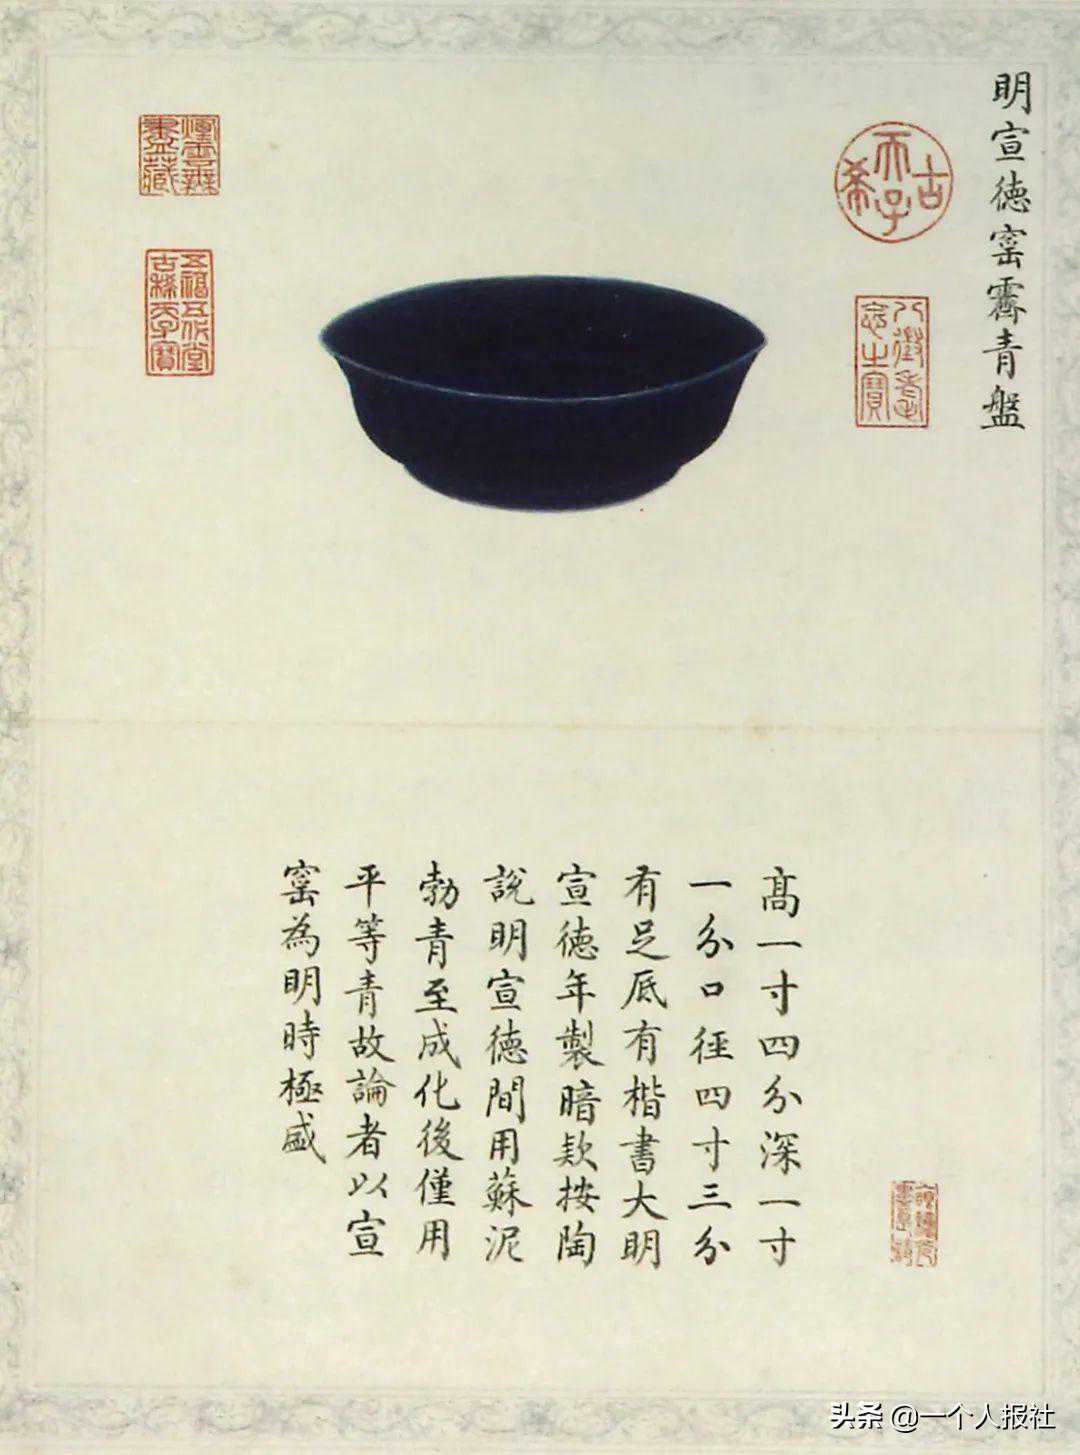 明宣德窰霽青盤
古希天子
八徵耄念之寶
五福五代堂古稀天子寶
高一寸四分深一寸
一分口徑四寸三分
有足底有楷書大明
宣德年製暗款按陶
說明宣德間用蘇泥
勃青至成化後僅用
平等青故論者以宣
窰為明時極盛
头条 @一个人报社